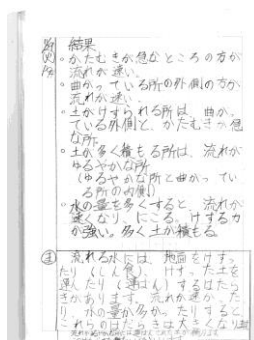 結果
・かたむきが急なところの方が
流れが速い。
・曲がっている所の外側の方が
流れが速い。
・土がけずられる所は、曲がっ
ている外側と、かたむきが急
な所。
・土が多く積もる所は、流れが
ゆるやかな所
(ゆるやかな所と曲がってい
る所の内側)
・水の量を多くすると、流れが
速くなり、にごる。けずる力
が強い。多く土が積もる。
ま 流れる水には、地面をけずっ
たり(しん食)、けずった土を
運んだり(運ぱん)するはたら
きがあります。流れが速かった
り、水の量が多かったりすると
これらのはたらきは大きくなり